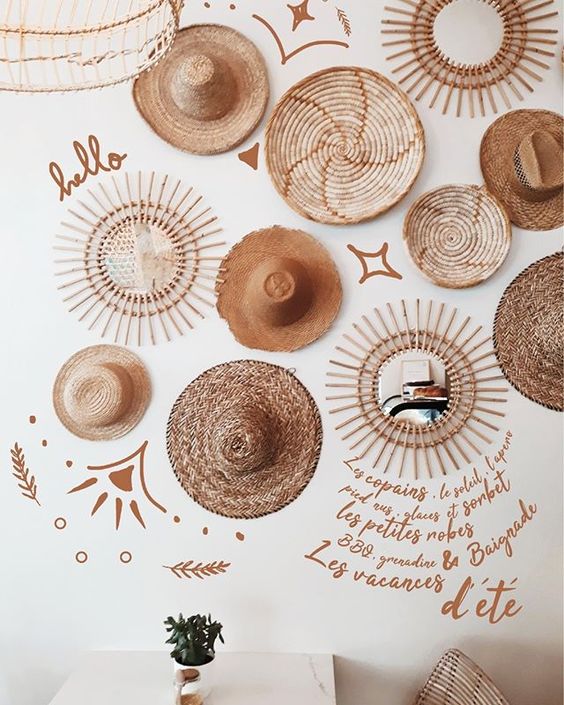 hello
Les copains, le soleil, l'apero
pied nus, glaces et sorbet
les petites robes
BBQ, grenadine & Baignade
Les vacances
d'été